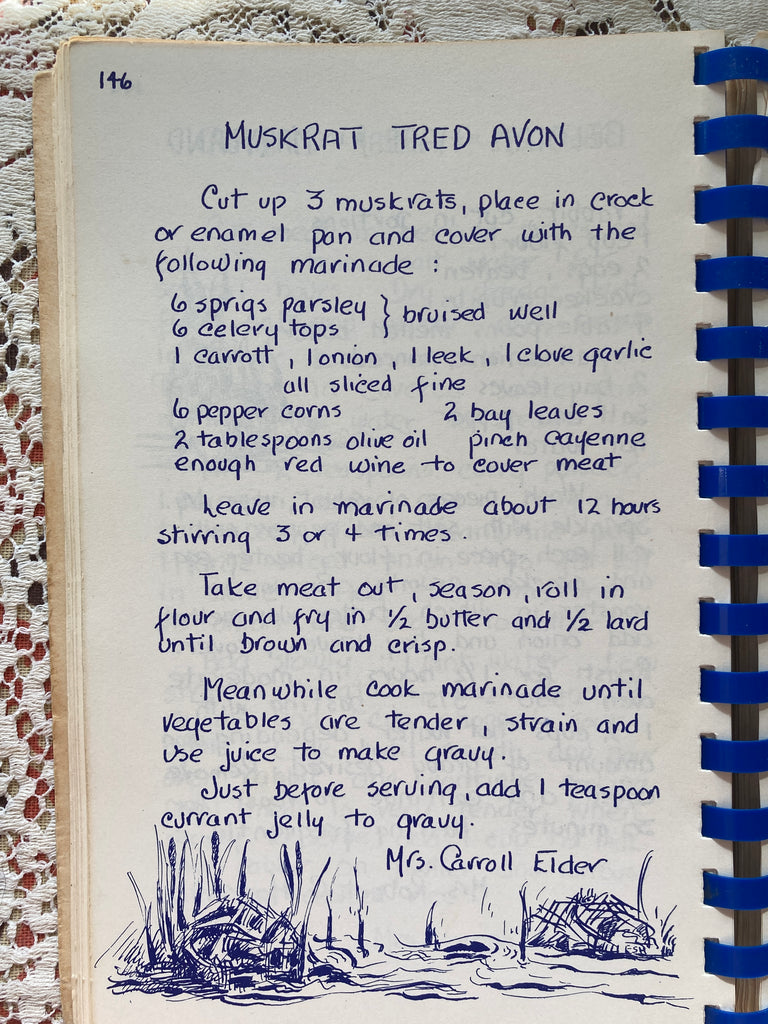 146
MUSKRAT TRED AVON
Cut up 3 muskrats, place in crock
or enamel pan and cover with the
following marinade :
6 sprigs parsley } bruised well
6 celery tops
1 carrott , 1 onion , 1 leek , 1 clove garlic
all sliced fine
6 pepper corns 2 bay leaves
2 tablespoons olive oil pinch cayenne
enough red wine to cover meat
Leave in marinade about 12 hours
stirring 3 or 4 times
Take meat out , season , roll in
flour and fry in 1/2 butter and 1/2 lard
until brown and crisp.
Meanwhile cook marinade until
vegetables are tender , strain and
use juice to make gravy.
Just before serving, add 1 teaspoon
currant jelly to gravy.
Mrs. Carroll Elder